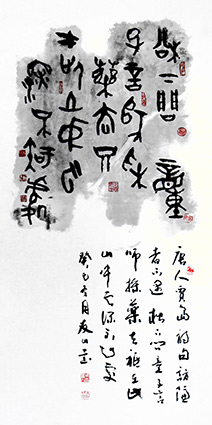 松下問童
子言師采
藥去只
在此山中云
深不知處
唐人賈島訪隱
者不遇 松下問童子言
師採藥去祗在此
山中雲深不知處
癸巳冬月